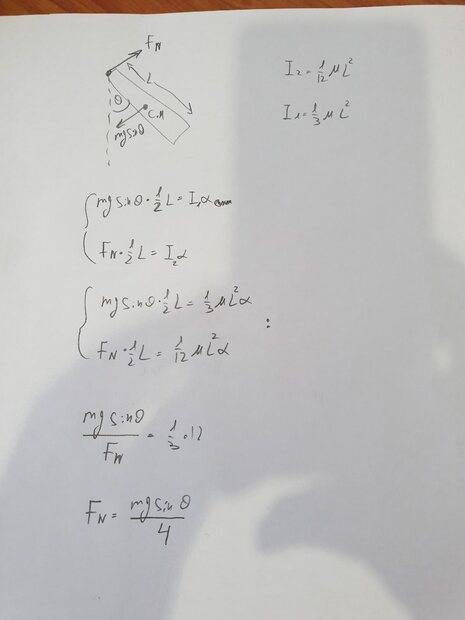 F_N
L
θ
C.M
mg sinθ
I₂ = 1/12 ML²
I₁ = 1/3 ML²
mg sinθ · 1/2 L = I₁α
F_N · 1/2 L = I₂α
mg sinθ · 1/2 L = 1/3 ML²α
:
F_N · 1/2 L = 1/12 ML²α
mg sinθ / F_N = 1/3 · 12
F_N = mg sinθ / 4